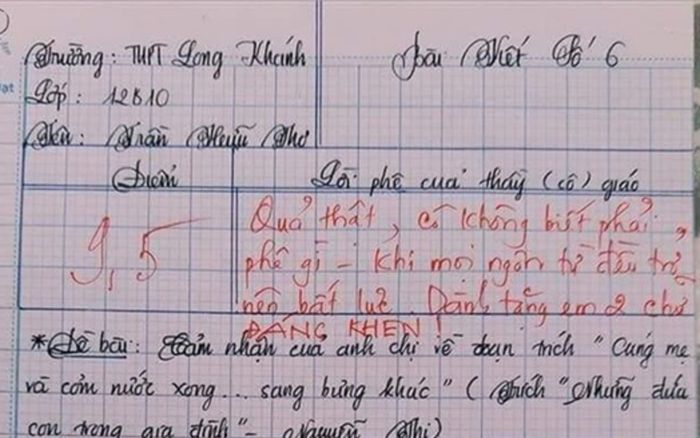 Trường: THPT Long Khánh
Bài Viết Số 6
Lớp: 12B10
Tên: Trần Hữu Thơ
Điểm
Lời phê của thầy (cô) giáo
9,5
Quả thật, cô không biết phải
phê gì - khi mọi ngôn từ đều trở
nên bất lực. Dành tặng em 2 chữ
ĐÁNG KHEN!
*Đề bài: Cảm nhận của anh chị về đoạn trích "Cúng mẹ
và cơm nước xong... sang bưng khác" (Trích "Những đứa
con trong gia đình" - Nguyễn Thi)